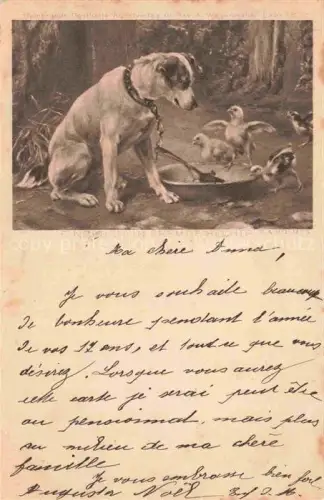 Ma chère Anna,
Je vous souhaite beaucoup
de bonheure pendant l'année
de vos 17 ans, et tout ce que vous
désirez. Lorsque vous aurez
cette carte je serai peut être
au pensionnat, mais plus
au milieu de ma chère
famille.
Je vous embrasse bien fort
Augusta Noël